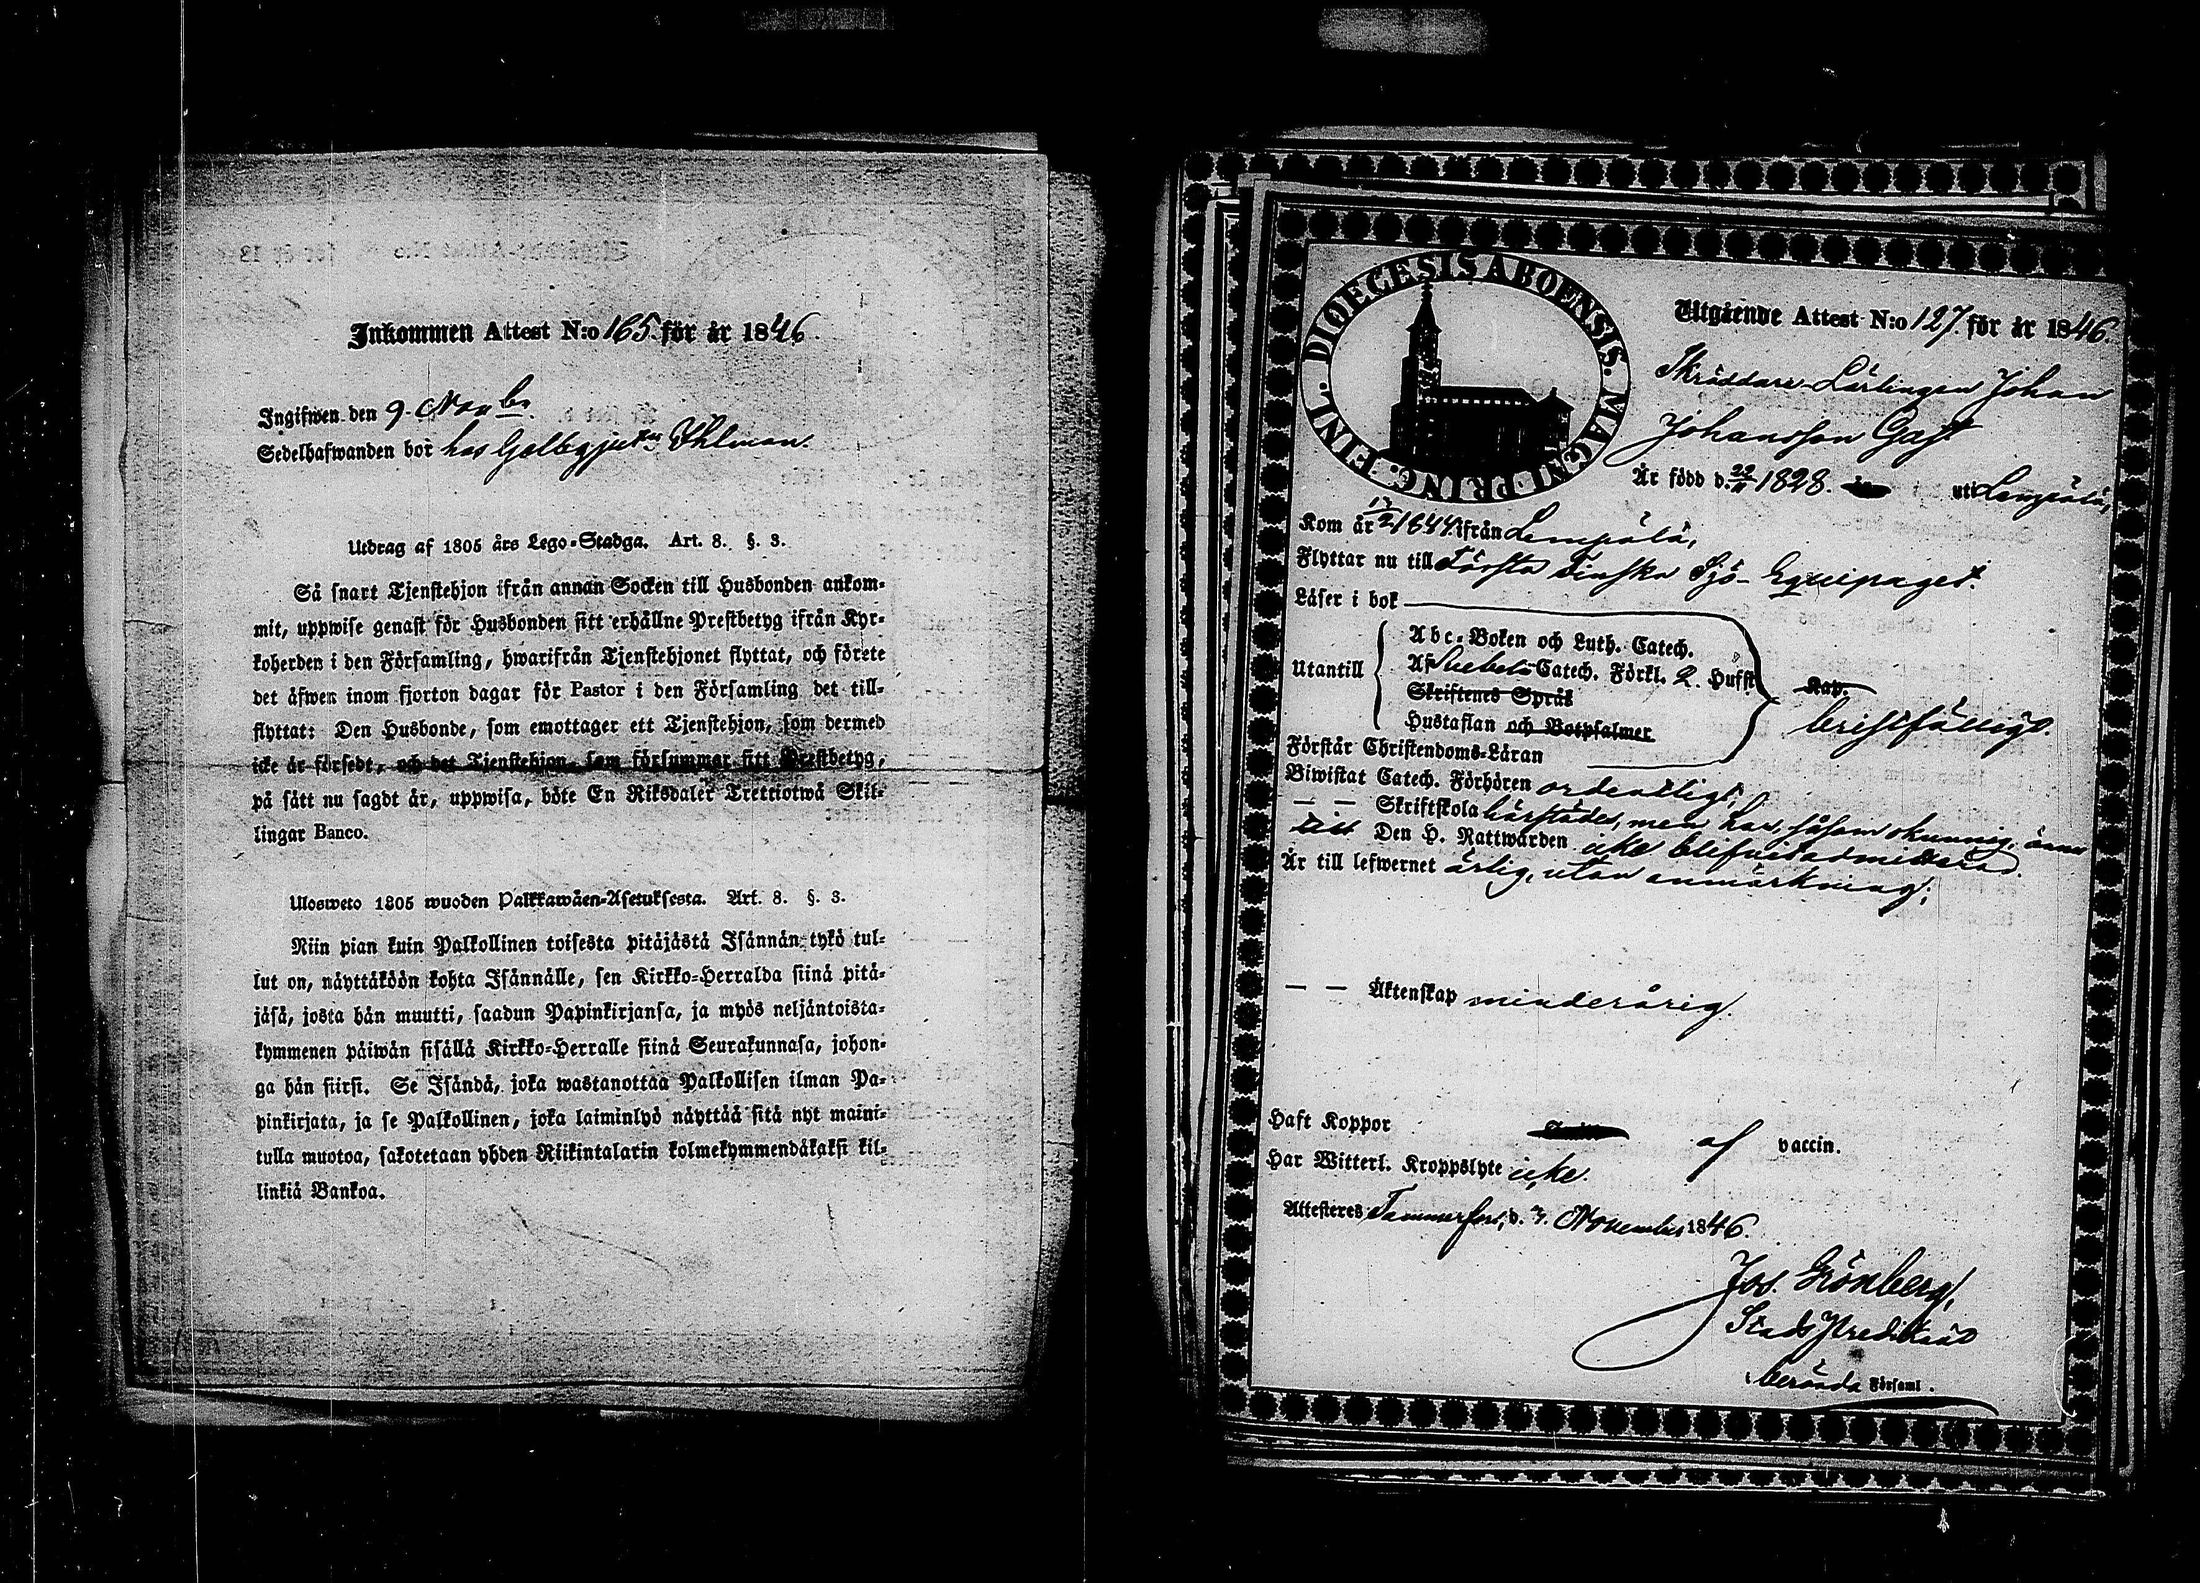 Inkommen Attest N:o 165. för år 1846.
Ingifwen den 9. Novbr
Sedelhafwanden bor hos Ihlman.
Utdrag af 1805 års Lego-Stadga. Art. 8. §. 3.
Så snart Tjenstehjon ifrån annan Socken till Husbonden ankom-
mit, uppwise genast för Husbonden sitt erhållne Prestbetyg ifrån Kyr-
koherden i den Församling, hwarifrån Tjenstehjonet flyttat, och förete
det äfwen inom fjorton dagar för Pastor i den Församling det till-
flyttat: Den Husbonde, som emottager ett Tjenstehjon, som dermed
icke är försedt, och det Tjenstehjon, som förlummar sitt Prestbetyg,
på sätt nu sagdt är, uppwisa, böte En Riksdaler Trettiotwå Skil-
lingar Banco.
Ulosweto 1805 wuoden Palkkawäen-Asetuksesta. Art. 8. §. 3.
Niin pian kuin Palkollinen toisesta pitäjästä Isännän tykö tul-
lut on, näyttäköön kohta Isännälle, sen Kirkko-Herralda siinä pitä-
jäsä, josta hän muutti, saadun Papinkirjansa, ja myös neljäntoista-
kymmenen päiwän sisällä Kirkko-Herralle siinä Seurakunnasa, johon-
ga hän siirsi. Se Isändä, joka wastanottaa Palkollisen ilman Pa-
pinkirjata, ja se Palkollinen, joka laiminlyö näyttää sitä nyt maini-
tulla muotoa, sakotetaan yhden Riikintalarin kolmekymmendäkaksi kil-
linkiä Bankoa.
DIOECESIS ABOENSIS. MAGNI PRINC. FINL.
Utgående Attest N:o 127. för år 1846.
Skräddare-Lärlingen Johan
Johansson Gast
Är född d. 22/11 1828. uti Lempälä,
Kom år 17/2 1844. ifrån Lempälä,
Flyttar nu till Första Finska Sjö-Equipaget.
Läser i bok
Utantill
Abc-Boken och Luth. Catech.
Af Svebeli Catech. Förkl. 2 Hufst
Skriftenes Språk
Hustaflan och Botpsalmer
Kap.
bristfälligt.
Förstår Christendoms-Läran
Biwistat Catech. Förhören ordentligt,
— — Skriftskola härstädes, men har, såsom okunnig, ännu
Den H. Nattwarden icke blifvit admitterad.
Är till lefwernet ärlig, utan anmärkning;
— — Äktenskap minderårig.
Haft Koppor af vaccin.
Har Witterl. Kroppslyte icke.
Attesteres Tammerfors, d. 7. November 1846.
Jos. Grönberg,
Stads Predikant
i berörda Församl.